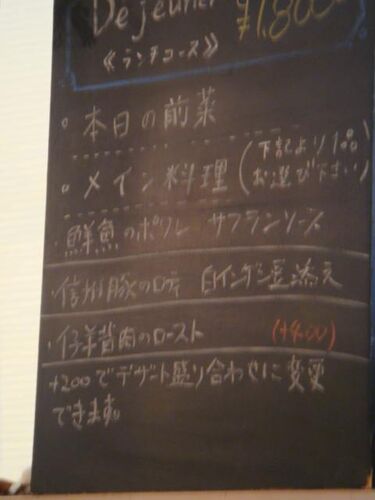 Déjeuner ¥1,800
≪ランチコース≫
。本日の前菜
。メイン料理(下記より1品お選び下さい)
・鮮魚のポワレ サフランソース
・信州豚のロティ 白インゲン豆添え
・仔羊背肉のロースト (+400)
+200でデザート盛り合わせに変更
できます。